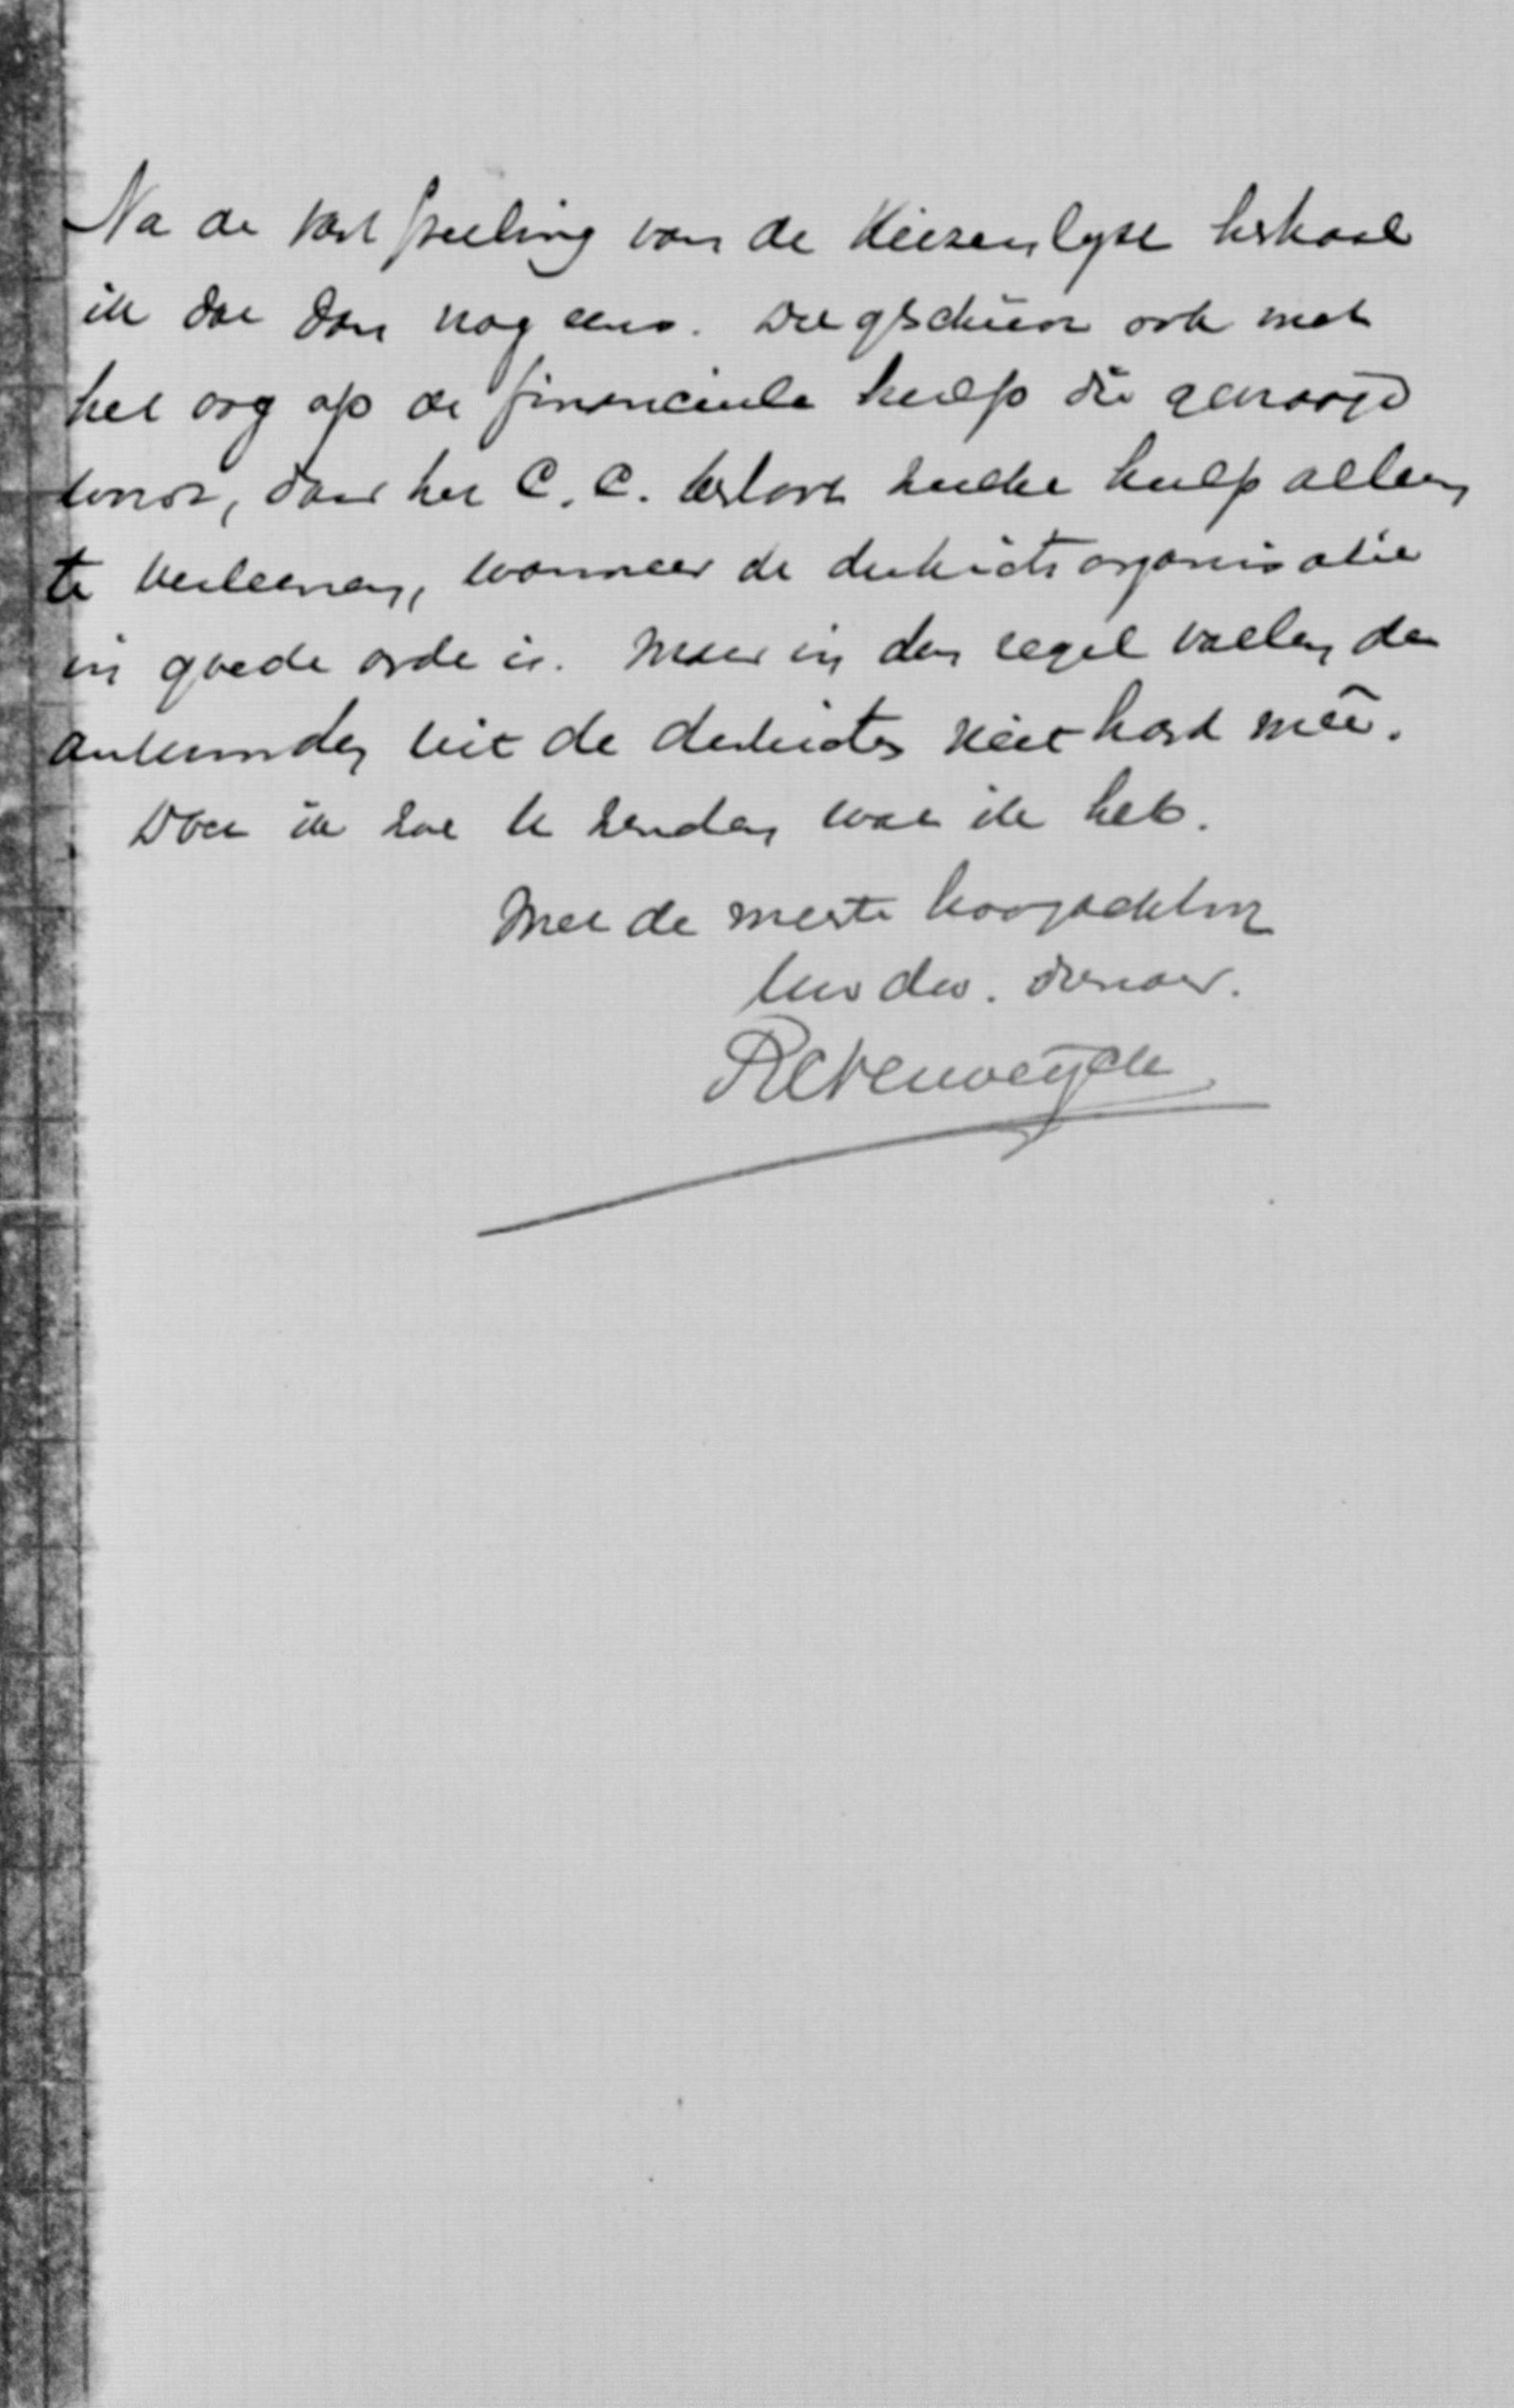 Na de vaststelling van de kiezerslyst herhaal
ik dat dan nog eens. Dit geschiedt ook met
het oog op de financieele hulp die gevraagd
wordt, daar het C. C. besloot zulke hulp alleen
te verleenen, wanneer de districtsorganisatie
in goede orde is. Maar in den regel vallen de
antwoorden uit de districten niet hard meê.
Doch ik zal U zenden wat ik heb.
Met de meeste hoogachting
Uw dw. dienaar.